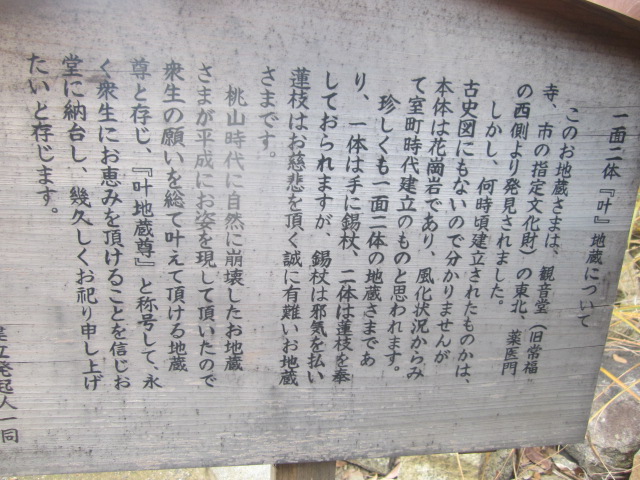 一面二体『叶』地蔵について
このお地蔵さまは、観音堂（旧常福
寺、市の指定文化財）の東北、薬医門
の西側より発見されました。
しかし、何時頃建立されたものかは、
古史図にもないので分かりませんが
本体は花崗岩であり、風化状況からみ
て室町時代建立のものと思われます。
珍しくも一面二体の地蔵さまであ
り、一体は手に錫杖、二体は蓮枝を奉
しておられますが、錫杖は邪気を払い
蓮枝はお慈悲を頂く誠に有難いお地蔵
さまです。
桃山時代に自然に崩壊したお地蔵
さまが平成にお姿を現して頂いたので
衆生の願いを総て叶えて頂ける地蔵
尊と存じ、『叶地蔵尊』と称号して、永
く衆生にお恵みを頂けることを信じお
堂に納台し、幾久しくお祀り申し上げ
たいと存じます。
建立発起人一同